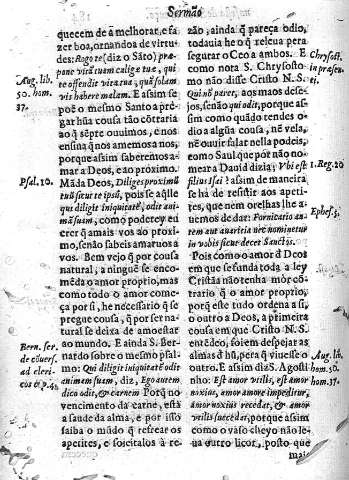 Sermão
quecem de á melhorar, e fa
zer boa, ornandoa de virtu
des: Rogo te (diz o Sāto) præ
pone vitā tuam caligæ tuæ, qui
te offendit vita tua, quā solam
vis habere malam. E assim se
poē o mesmo Santo a pré
gar hūa cousa tāo cōtraria
ao q̃ sēpre ouuimos, e nos
ensina q̃ nos amemos a nos,
porque assim saberemos a-
mar a Deos, e ao próximo.
Māda Deos, Diliges proximū
tuū sicut te ipsū, pois se aq̃lle
qui diligit iniquitatē, odit ani-
mam suam, como poderey eu
crer q̃ amais vos ao proxi-
mo, senão sabeis amaruos a
vos. Bem vejo q̃ por cousa
natural, a ninguē se enco-
mēda o amor proprio, mas
como todo o amor come-
ça por si, he necessario q̃ se
pregue cousa, q̃ por ser na
tural se deixa de amoestar
ao mundo. E ainda S. Ber-
nardo sobre o mesmo psal-
mo: Qui diligit iniquitatē odit
animam suam, diz, Ego autem
dico odit, & carnem Porq̃ no
vencimento da carne, está
a saude da alma, e por isso
faiba o mūdo q̃ refrear os
apetites, e soieitalos à re-
Aug. lib.
50. hom.
37.
Psal. 10.
Bern. ser.
de cōuers.
ad cleri-
cos
zão, ainda q̃ pareça odio,
todauia he o q̃ releua pera
segurar o Ceo a ambos. E
como nota S. Chrysosto-
mo não disse Cristo N. S.
Qui nō paret, aos maos dese-
jos, senão qui odit, porque as-
sim como quādo tendes o-
dio a algūa cousa, nē vela,
nē ouuir falar nella podeis,
como Saul que por não no-
mear a Dauid dizia; Vbi est
filius Isai? assim de maneira
se ha de resistir aos apeti-
tes, que nem orelhas lhe a-
uemos de dar: Fornicatio au-
tem aut auaritia nec nominetur
in vobis sicut decet Sanctos.
Pois como o amor d̃ Deos
em que se funda toda a ley
Cristãa não tenha mòr cō-
trario q̃ o amor proprio,
porq̃ este tudo ordena a si,
o outro a Deos, a primeira
cousa em que Cristo N. S.
entēdeo, foi em despejar as
almas d̃ hū, pera q̃ viuesse o
outro. E assim diz S. Agosti-
nho: Est amor vtilis, est amor
noxius, amore amor impeditur,
amor noxius recedat, & amor
vtilis succedat, porque assim
como o vaso cheyo não le-
ua outro licor, posto que
mais
Chrysost.
1. Reg. 20
Ephes. 5.
Aug. lib.
50. hom.
37.